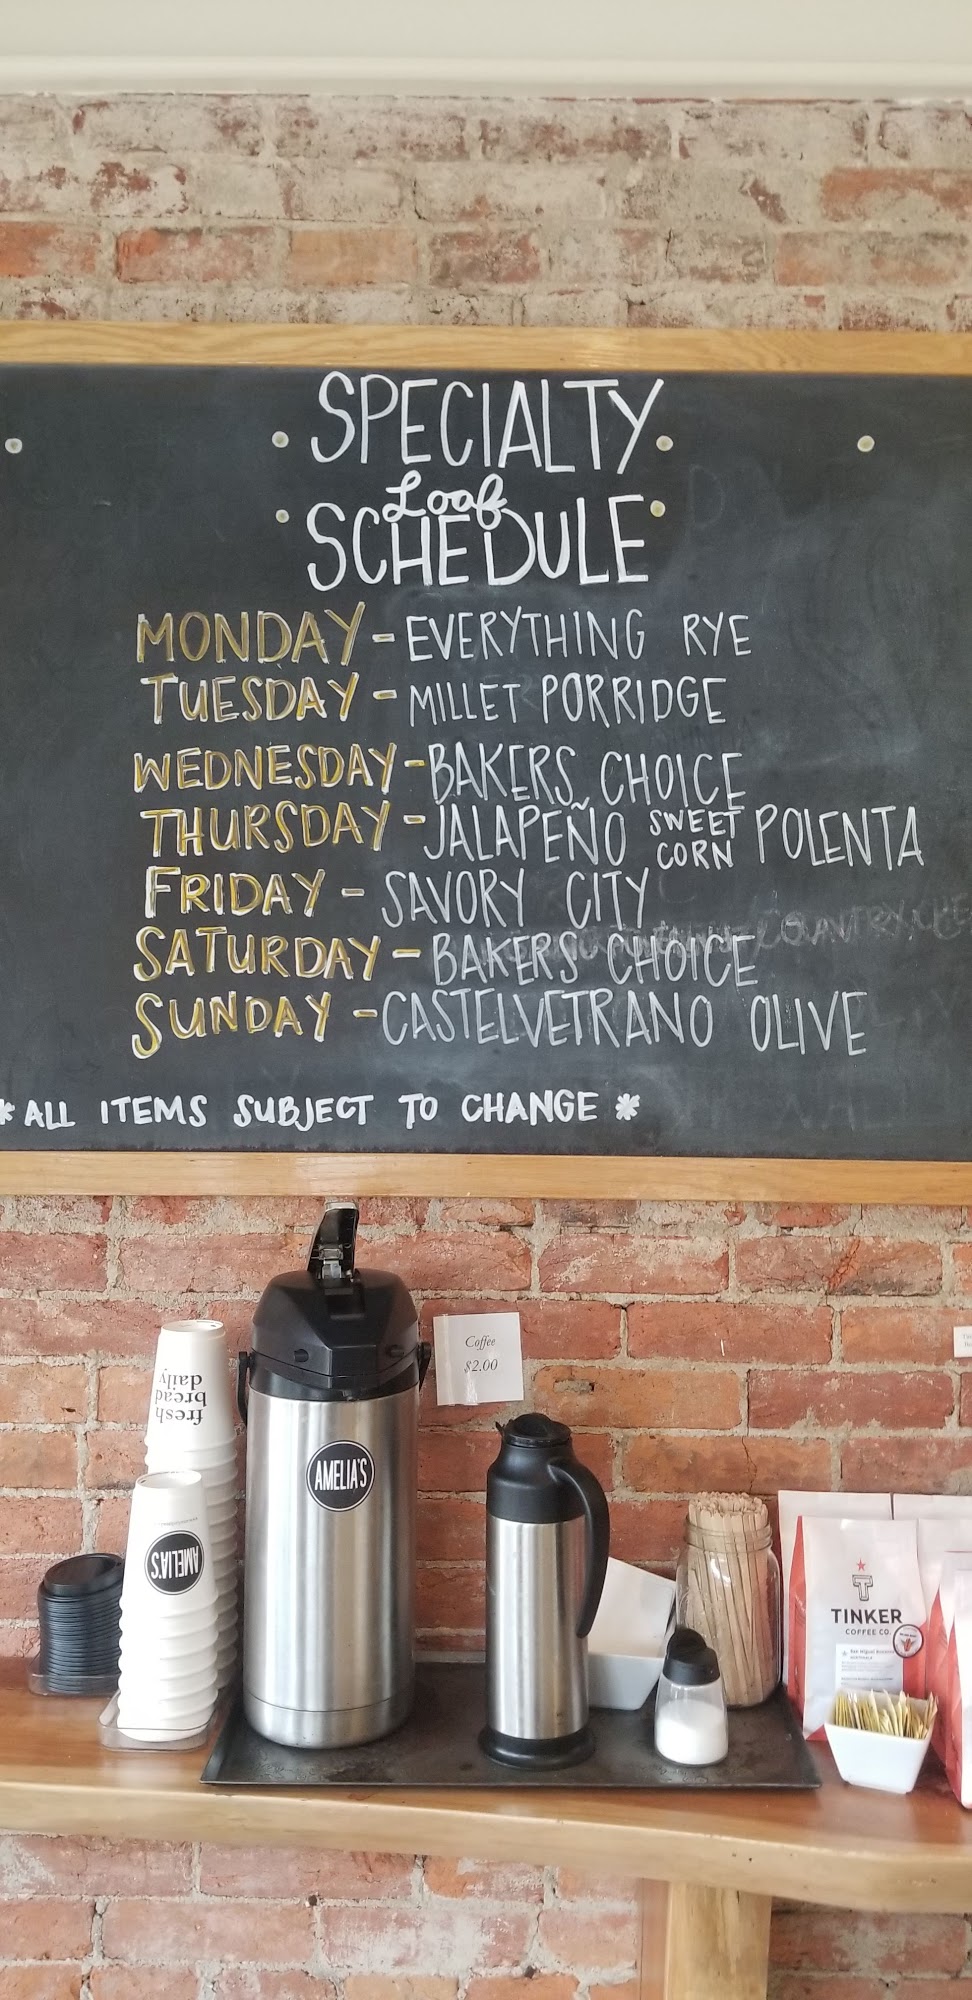 SPECIALTY
Loaf
SCHEDULE
MONDAY - EVERYTHING RYE
TUESDAY - MILLET PORRIDGE
WEDNESDAY - BAKERS CHOICE
THURSDAY - JALAPEÑO SWEET CORN POLENTA
FRIDAY - SAVORY CITY
SATURDAY - BAKERS CHOICE
SUNDAY - CASTELVETRANO OLIVE
* ALL ITEMS SUBJECT TO CHANGE *
Coffee
$2.00
fresh
bread
daily
AMELIA'S
AMELIA'S
T
TINKER
COFFEE CO.